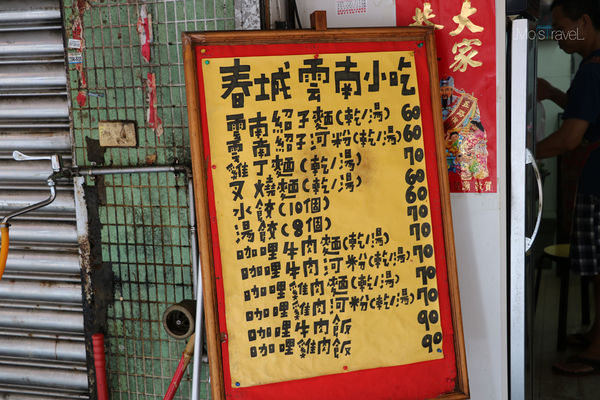 春城雲南小吃
雲南紹子麵(乾/湯) 60
雲南紹子河粉(乾/湯) 60
雞丁麵(乾/湯) 70
叉燒麵(乾/湯) 60
水餃(10個) 60
湯餃(8個) 70
咖哩牛肉麵(乾/湯) 70
咖哩牛肉河粉(乾/湯) 70
咖哩雞肉麵(乾/湯) 70
咖哩雞肉河粉(乾/湯) 70
咖哩牛肉飯 90
咖哩雞肉飯 90
大家
Mo'sTraveL